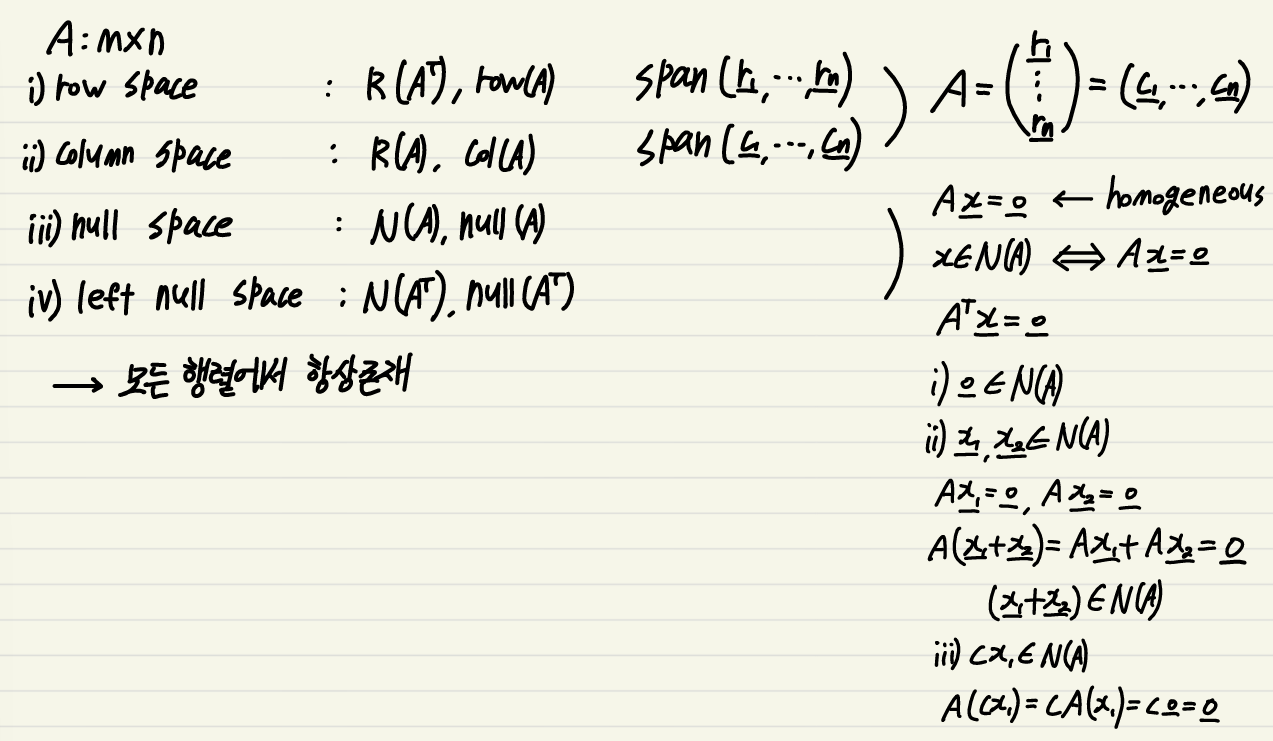 A : m×n
i) row space : R(Aᵀ), row(A) span(r₁, ⋯, rₙ)
ii) column space : R(A), Col(A) span(c₁, ⋯, cₙ)
iii) null space : N(A), null(A)
iv) left null space : N(Aᵀ), null(Aᵀ)
→ 모든 행렬에서 항상존재
A = (r₁ ⋮ rₙ) = (c₁, ⋯, cₙ)
Ax = 0 ← homogeneous
x∈N(A) ⟺ Ax = 0
Aᵀx = 0
i) 0 ∈ N(A)
ii) x₁, x₂ ∈ N(A)
Ax₁ = 0, Ax₂ = 0
A(x₁+x₂) = Ax₁ + Ax₂ = 0
(x₁+x₂) ∈ N(A)
iii) cx₁ ∈ N(A)
A(cx₁) = cA(x₁) = c0 = 0